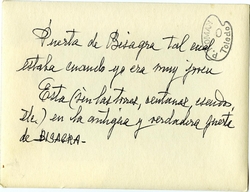 Puerta de Bisagra tal cual
estaba cuando yo era muy joven
Esta (sin las torres, ventanas, escudos,
etc.) es la antigua y verdadera puerta
de BISAGRA
Toledo